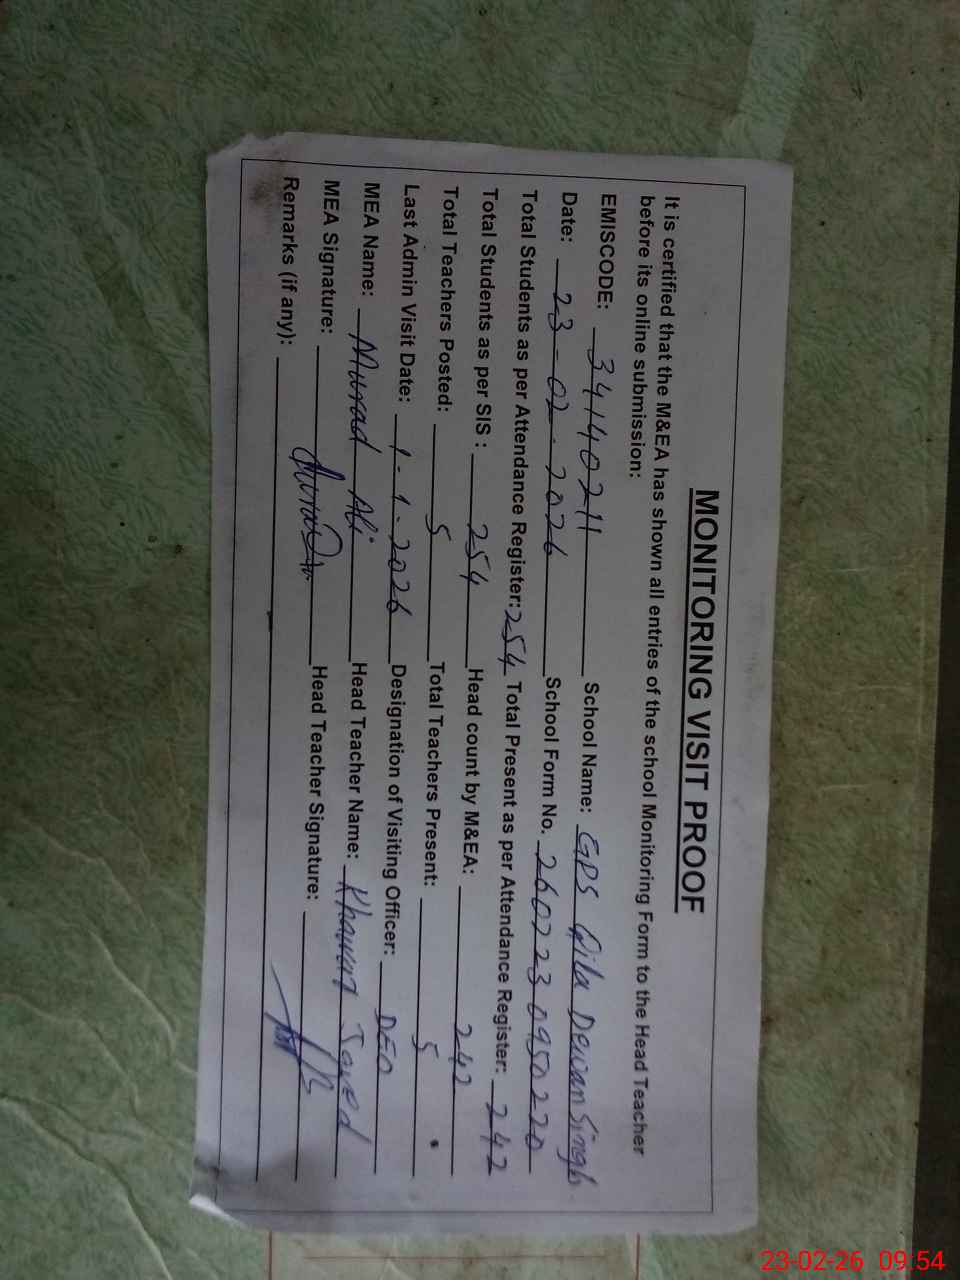 MONITORING VISIT PROOF
It is certified that the M&EA has shown all entries of the school Monitoring Form to the Head Teacher
before its online submission:
EMISCODE: 34140211 School Name: GPS Qila Dewan Singh
Date: 23-02-2026 School Form No. 2602230950220
Total Students as per Attendance Register: 254 Total Present as per Attendance Register: 242
Total Students as per SIS : 254 Head count by M&EA: 242
Total Teachers Posted: 5 Total Teachers Present: 5
Last Admin Visit Date: 1-1-2026 Designation of Visiting Officer: DEO
MEA Name: Murad Ali Head Teacher Name: Khawar Javed
MEA Signature: Head Teacher Signature:
Remarks (if any):
23-02-26 09:54